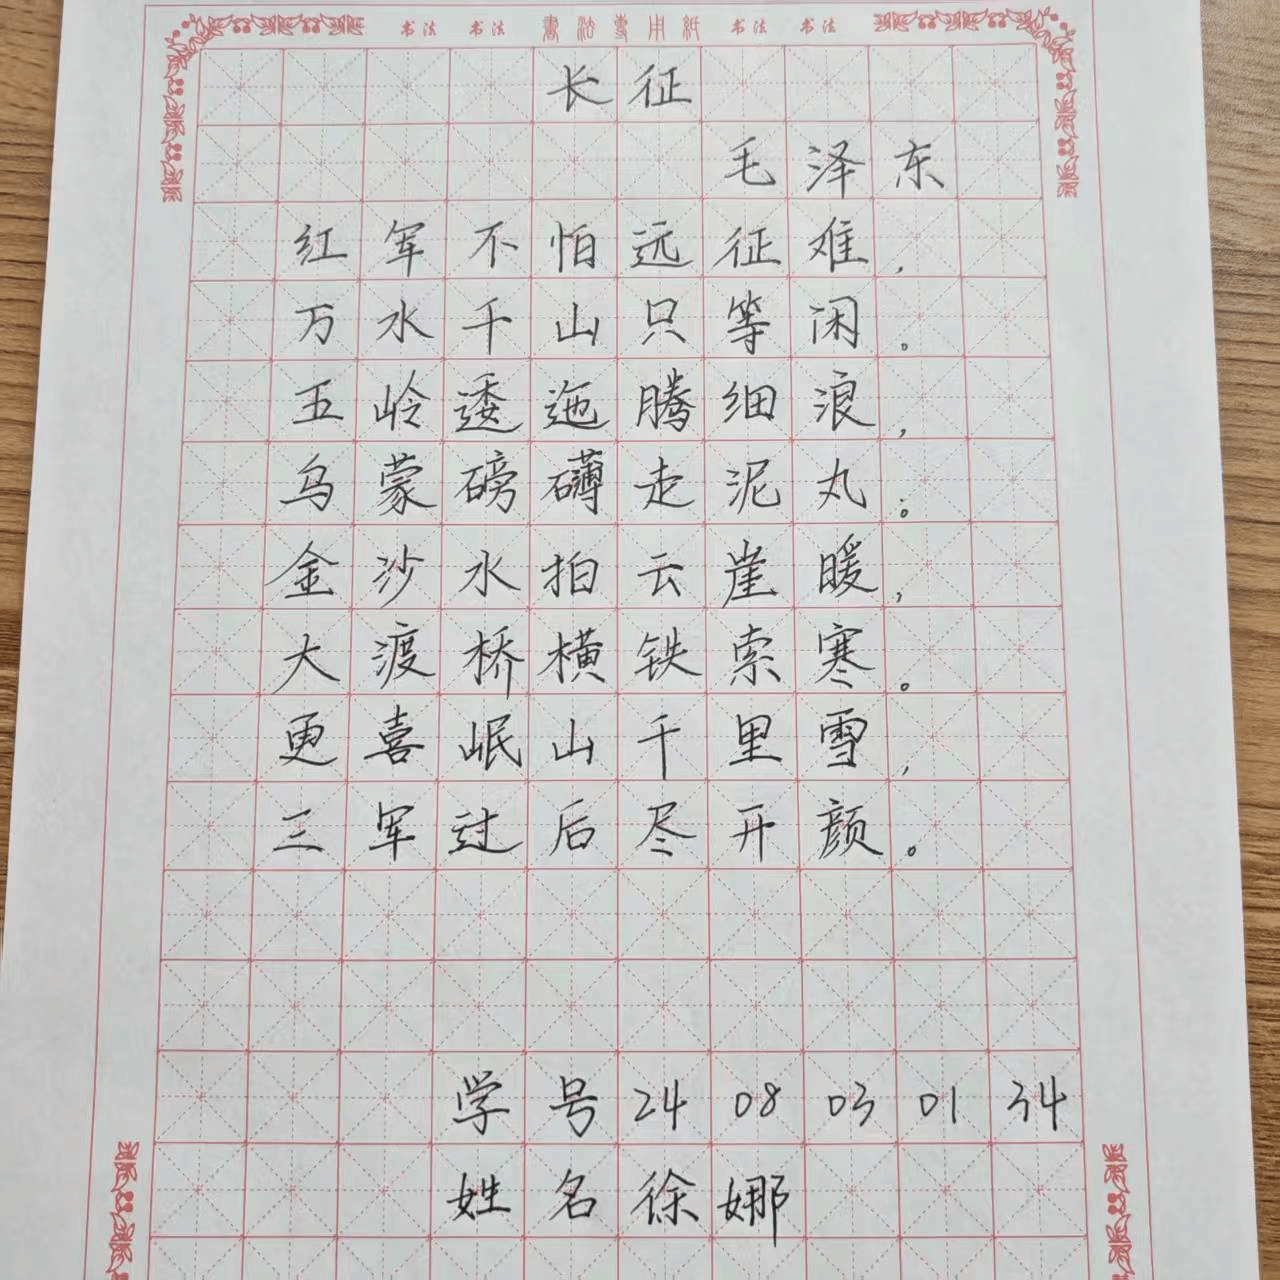 书法 书法 書法專用紙 书法 书法
长征
毛泽东
红军不怕远征难,
万水千山只等闲。
五岭逶迤腾细浪,
乌蒙磅礴走泥丸。
金沙水拍云崖暖,
大渡桥横铁索寒。
更喜岷山千里雪,
三军过后尽开颜。
学号 24 08 03 01 34
姓名徐娜